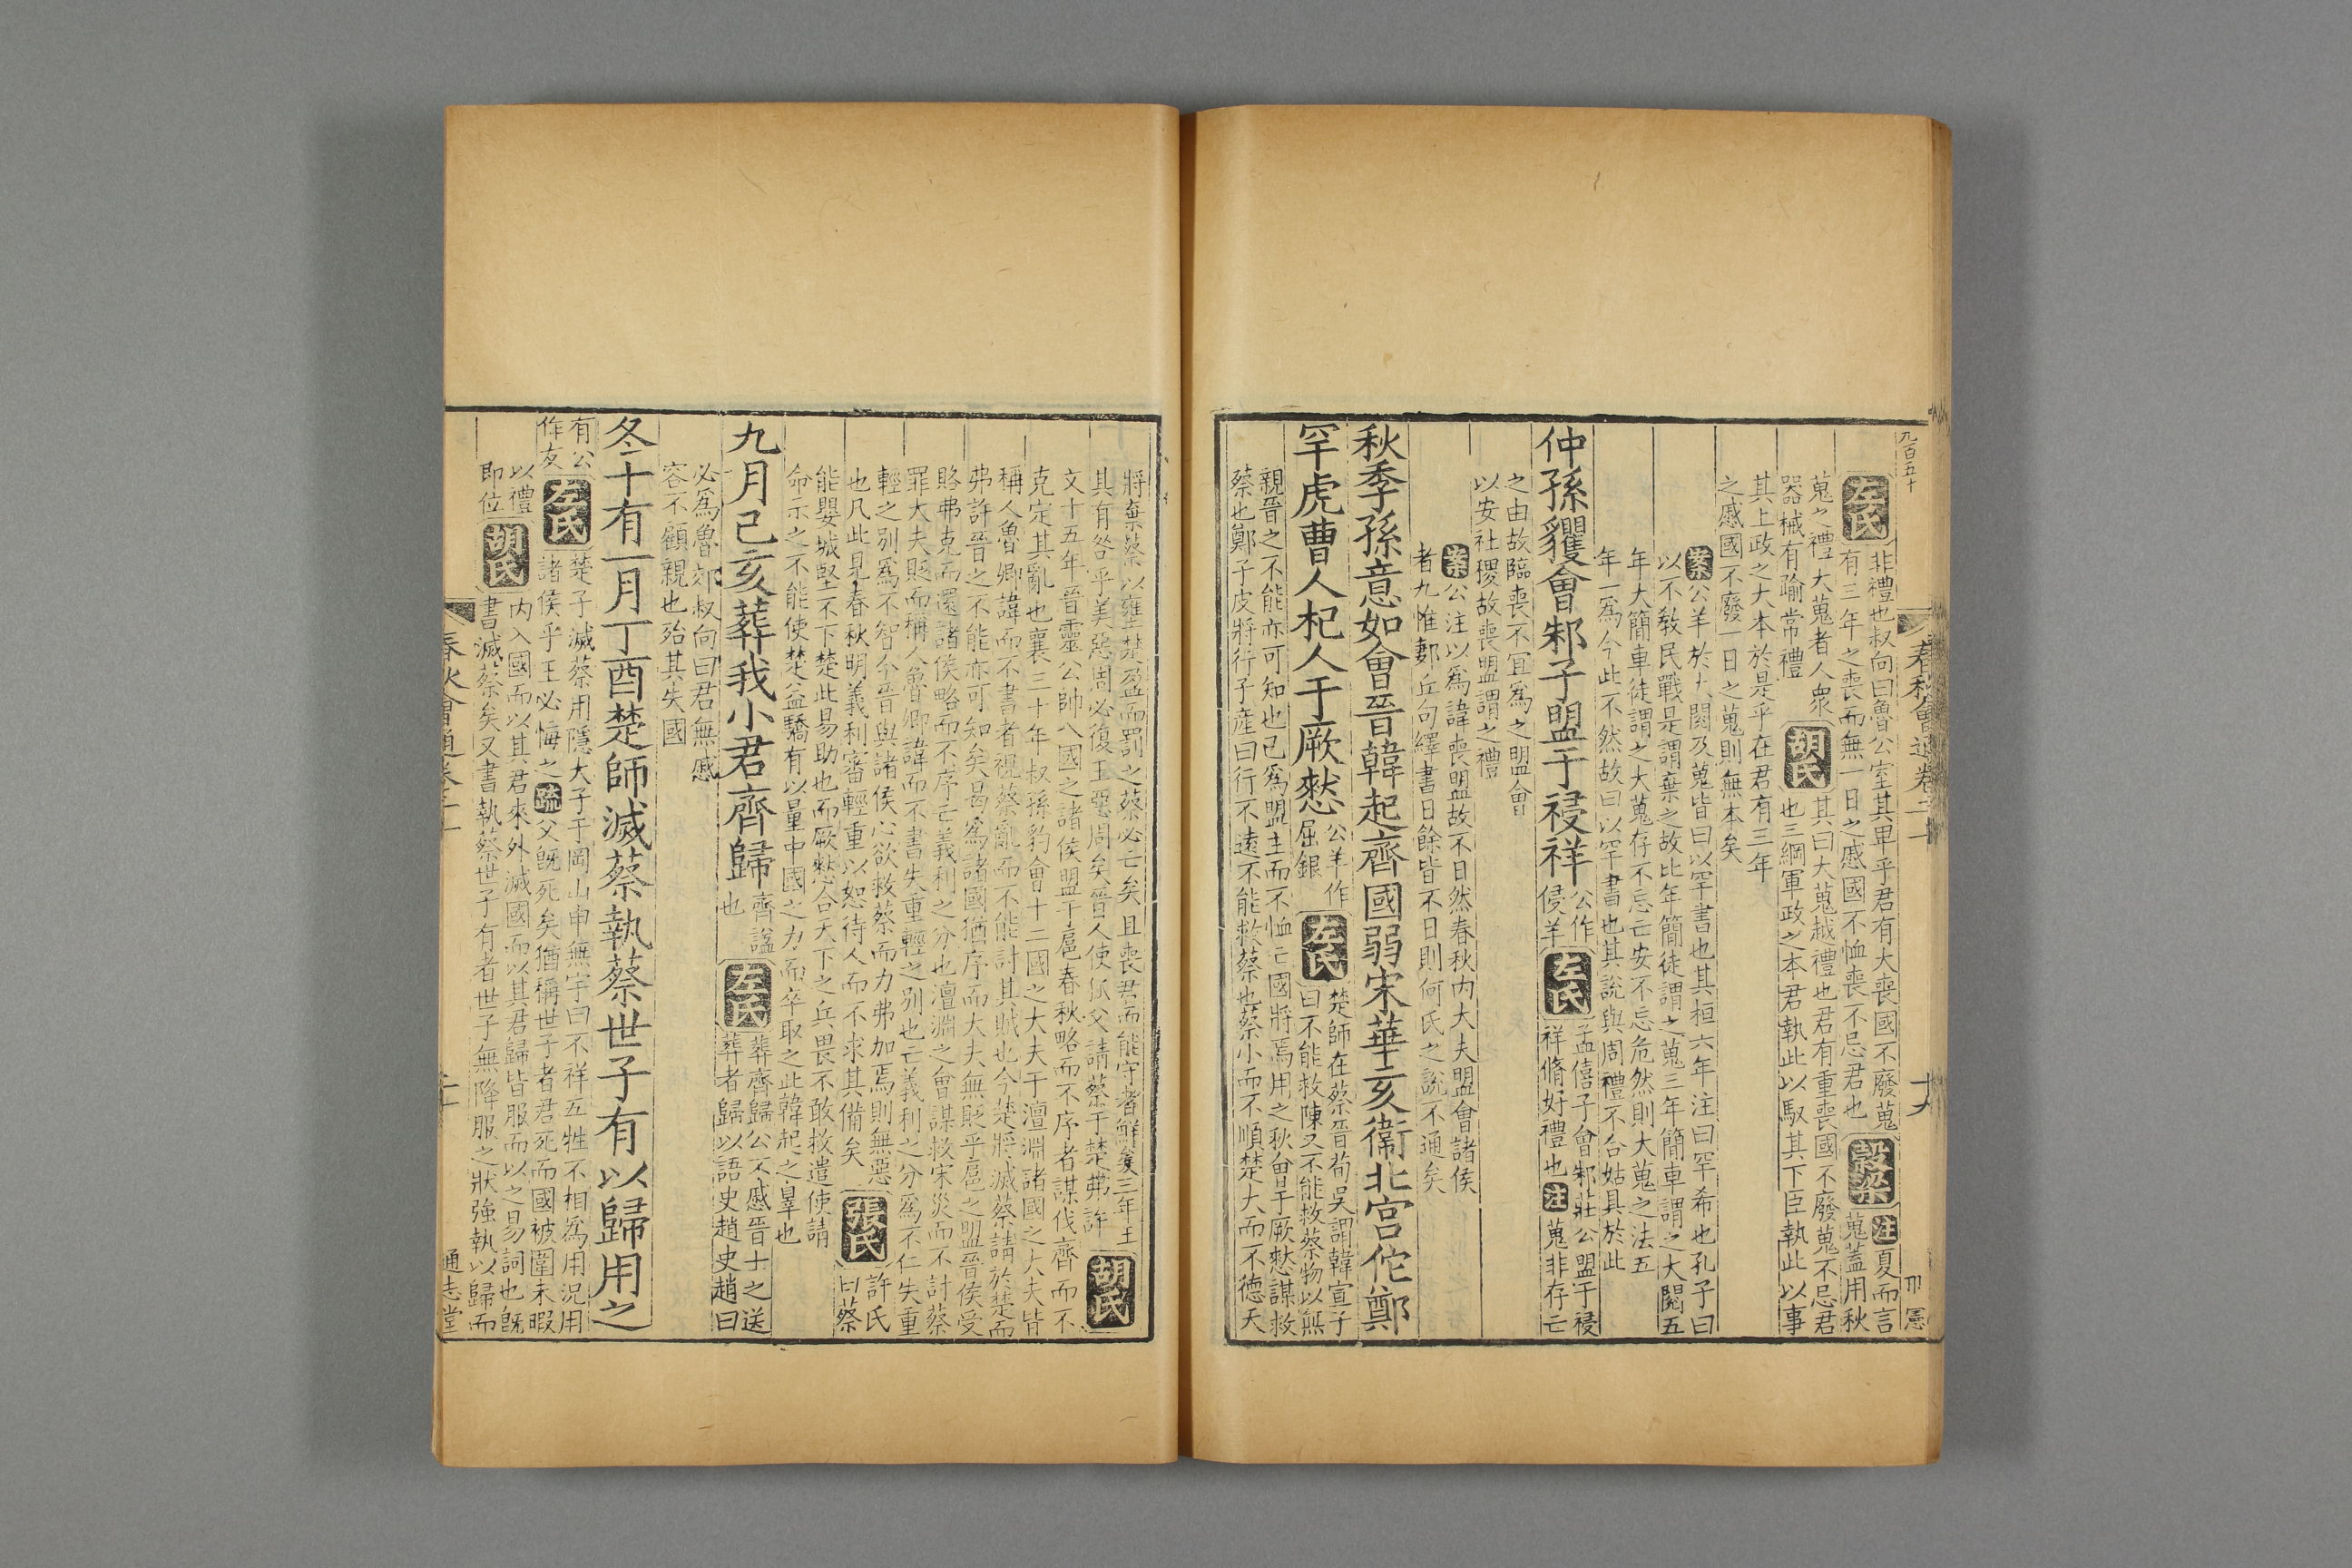 九百五十
春秋會通卷二十
十九
左氏 非禮也叔向曰魯公室其卑乎君有大喪國不廢蒐
有三年之喪而無一日之慼國不恤喪不忌君也 穀梁 注 夏而言
蒐蓋用秋
蒐之禮大蒐者人衆
器械有踰常禮 胡氏 其曰大蒐越禮也君有重喪國不廢蒐不忌君
也三綱軍政之本君執此以馭其下臣執此以事
其上政之大本於是乎在君有三年
之慼國不廢一日之蒐則無本矣
案 公羊於大閱及蒐皆曰以罕書也其桓六年注曰罕希也孔子曰
以不教民戰是謂棄之故比年簡徒謂之蒐三年簡車謂之大閱五
年大簡車徒謂之大蒐存不忘亡安不忘危然則大蒐之法五
年一爲今此不然故曰以罕書也其說與周禮不合姑具於此
仲孫貜會邾子盟于祲祥 公作
侵羊 左氏 孟僖子會邾莊公盟于祲
祥脩好禮也 注 蒐非存亡
之由故臨喪不宜爲之盟會
以安社稷故喪盟謂之禮
案 公注以爲諱喪盟故不日然春秋内大夫盟會諸侯
者九惟郪丘句繹書日餘皆不日則何氏之說不通矣
秋季孫意如會晉韓起齊國弱宋華亥衞北宫佗鄭
罕虎曹人杞人于厥憖 公羊作
屈銀 左氏 楚師在蔡晉荀吳謂韓宣子
曰不能救陳又不能救蔡物以無
親晉之不能亦可知也已爲盟主而不恤亡國將焉用之秋會于厥憖謀救
蔡也鄭子皮將行子産曰行不遠不能救蔡也蔡小而不順楚大而不德天
將棄蔡以壅楚盈而罰之蔡必亡矣且喪君而能守者鮮矣三年王
其有咎乎美惡周必復王惡周矣晉人使狐父請蔡于楚弗許 胡氏
文十五年晉靈公帥八國之諸侯盟于扈春秋略而不序者謀伐齊而不
克定其亂也襄三十年叔孫豹會十二國之大夫于澶淵諸國之大夫皆
稱人魯卿諱而不書者視蔡亂而不能討其賊也今楚將滅蔡請於楚而
弗許晉之不能亦可知矣曷爲諸國猶序而大夫無貶乎扈之盟晉侯受
賂弗克而還諸侯略而不序亡義利之分也澶淵之會謀救宋災而不討蔡
罪大夫貶而稱人魯卿諱而不書失重輕之别也亡義利之分爲不仁失重
輕之别爲不智今晉與諸侯心欲救蔡而力弗加焉則無惡
也凡此見春秋明義利審輕重以恕待人而不求其備矣 張氏 許氏
曰蔡
能嬰城堅不下楚此易助也而厥憖合天下之兵畏不敢救遣使請
命示之不能使楚益驕有以量中國之力而卒取之此韓起之辠也
九月己亥葬我小君齊歸 齊諡
也 左氏 葬齊歸公不慼晉士之送
葬者歸以語史趙史趙曰
必爲魯郊叔向曰君無慼
容不顧親也殆其失國
冬十有一月丁酉楚師滅蔡執蔡世子有以歸用之
有公
作友 左氏 楚子滅蔡用隱大子于岡山申無宇曰不祥五牲不相爲用況用
諸侯乎王必悔之 疏 父旣死矣猶稱世子者君死而國被圍未暇
以禮
即位 胡氏 内入國而以其君來外滅國而以其君歸皆服而以之易詞也旣
書滅蔡矣又書執蔡世子有者世子無降服之狀強執以歸而
春秋會通卷二十
通志堂